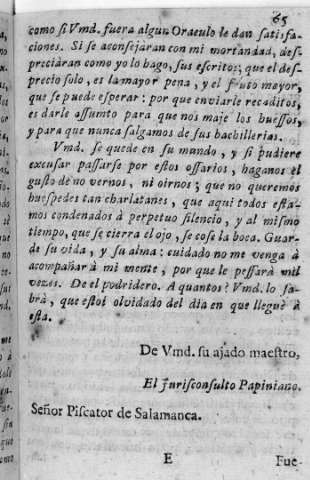 65
como si Vmd. fuera algun Oraculo le dan satisfa-
ciones. Si se aconsejaran con mi mortandad, des-
preciaran como yo lo hago, sus escritos; que el des-
precio solo, es la mayor pena, y el fruto mayor,
que se puede esperar: por que enviarle recaditos,
es darle assumto para que nos maje los huessos,
y para que nunca salgamos de sus bachillerias.
Vmd. se quede en su mundo, y si pudiere
escusar passarse por estos ossarios, haganos el
gusto de no vernos, ni oirnos; que no queremos
huespedes tan charlatanes, que aqui todos esta-
mos condenados à perpetuo silencio, y al mismo
tiempo, que se cierra el ojo, se cose la boca. Guar-
de su vida, y su alma: cuidado no me venga à
acompañar à mi mente, por que le pessarà mil
vezes. De el podridero. A quantos? Vmd. lo sa-
brà, que estoi olvidado del dia en que lleguè à
esta.
De Vmd. su ajado maestro,
El Jurisconsulto Papiniano.
Señor Piscator de Salamanca.
E
Fue-